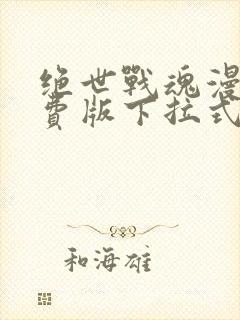 绝世戰魂漫
費版下拉式
和海雄